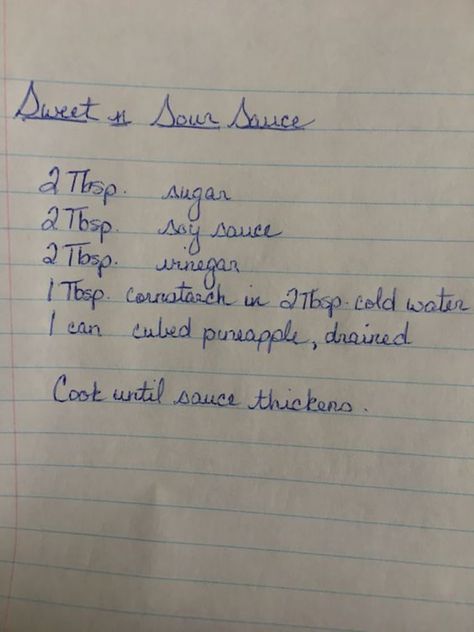 Sweet n Sour Sauce
2 Tbsp. sugar
2 Tbsp. soy sauce
2 Tbsp. vinegar
1 Tbsp. cornstarch in 2 Tbsp. cold water
1 can cubed pineapple, drained
Cook until sauce thickens.